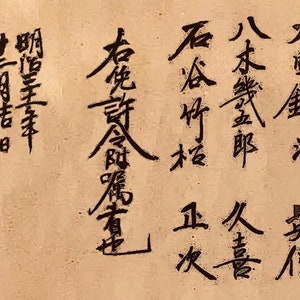 八木幾五郎 久喜
石谷竹松 正次
右免許令附属者也
明治三十一年
十二月吉日